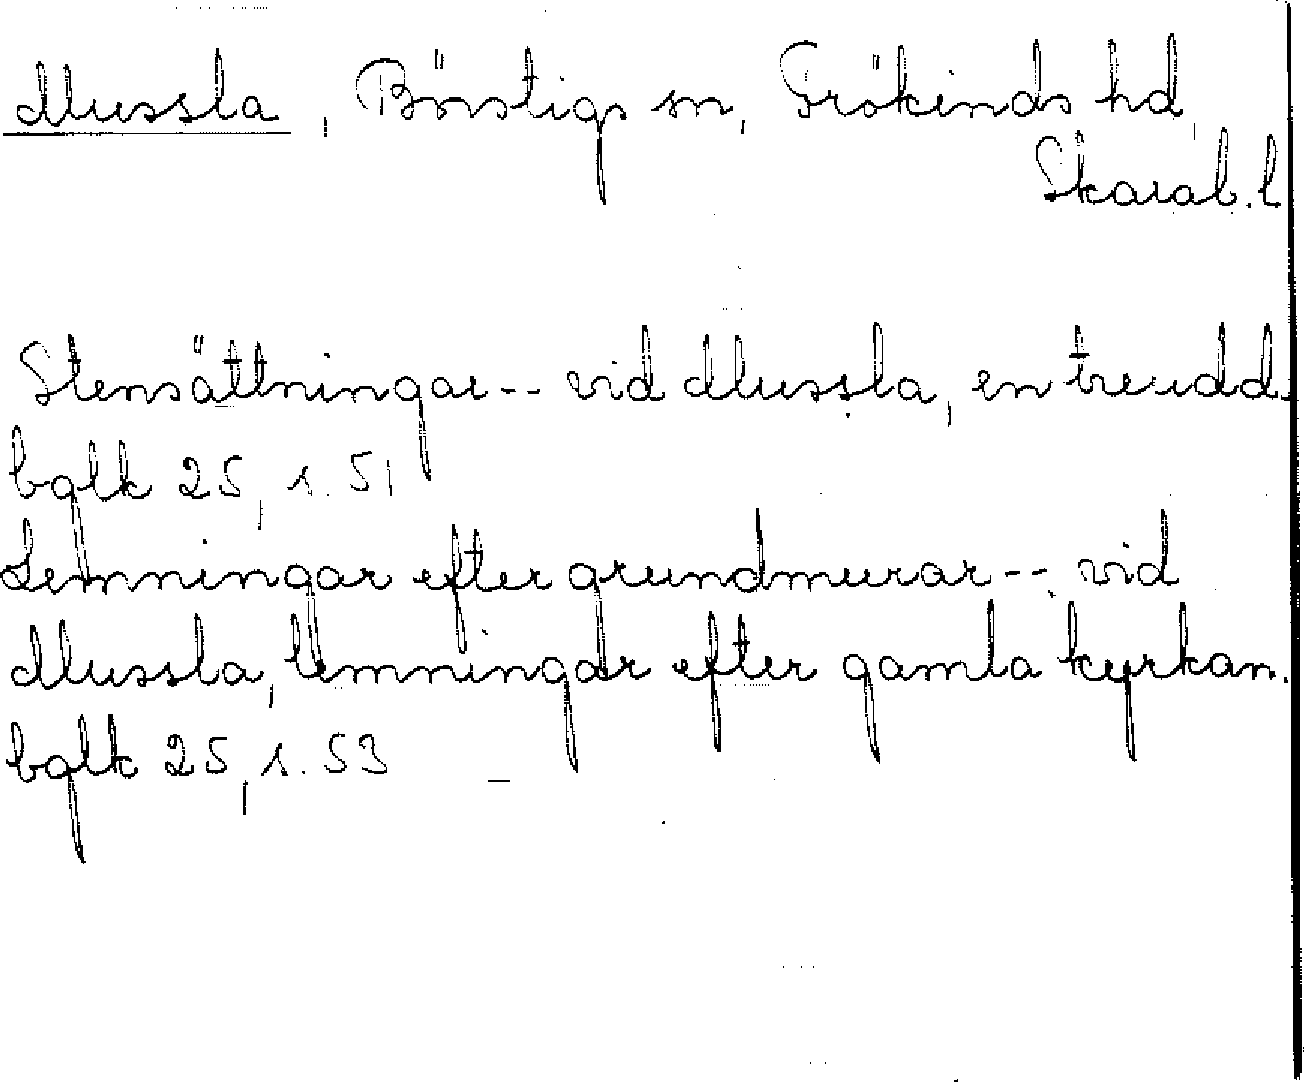 Mussla, Börstigs sn, Frökinds hd,
Skarab. l
Stensättningar -- vid Mussla, en treudd.
bglk 25, s. 51
Lemningar efter grundmurar -- vid
Mussla, lemningar efter gamla kyrkan.
bglk 25, s. 53